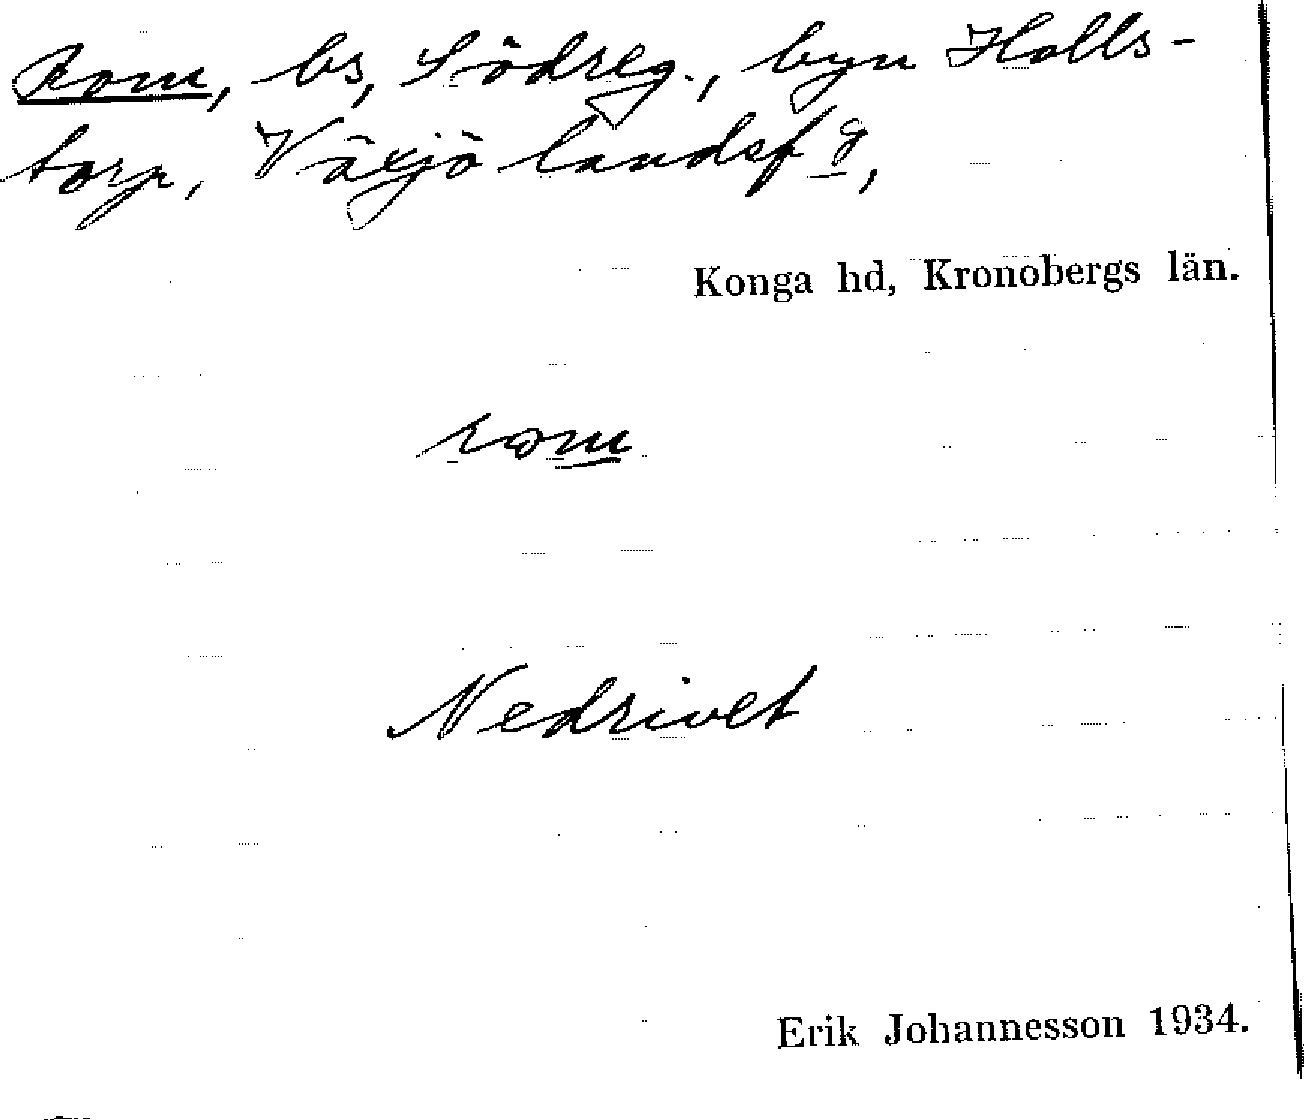 Rom, bs, Södreg., byn Holls-
torp, Växjö landsf g,
Konga hd, Kronobergs län.
rom
Nedrivet
Erik Johannesson 1934.